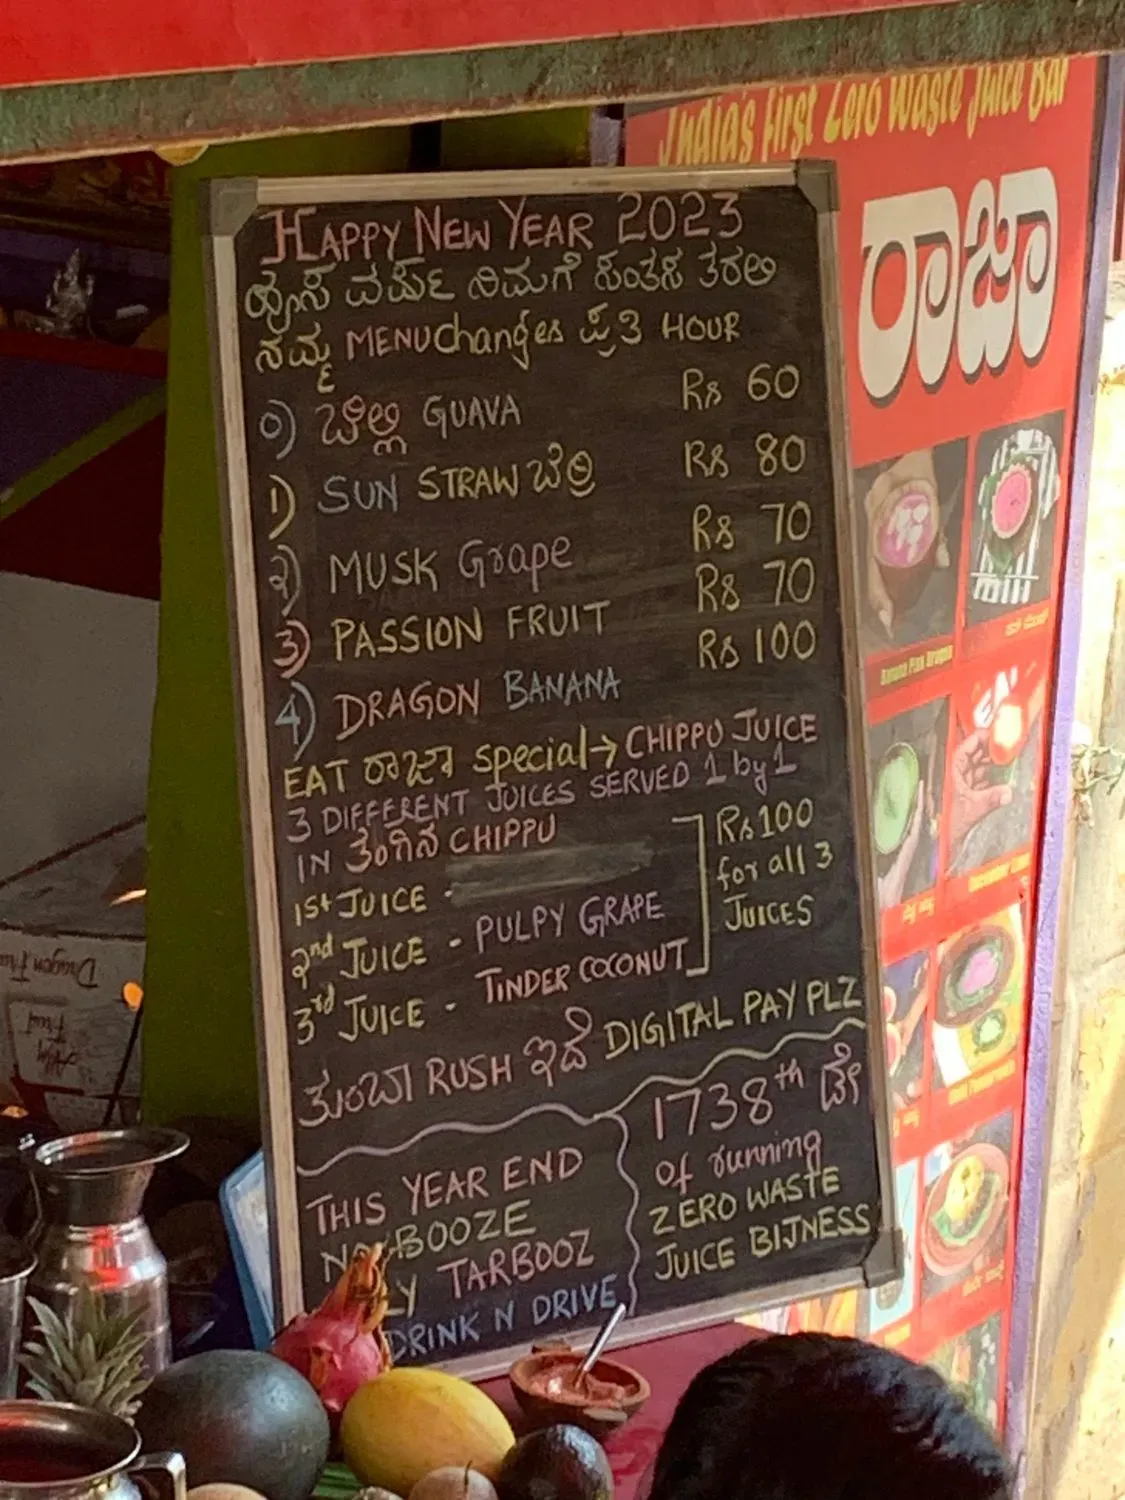 India's First Zero Waste Juice Bar
ರಾಜಾ
HAPPY NEW YEAR 2023
ಹೊಸ ವರ್ಷ ನಿಮಗೆ ಸಂತಸ ತರಲಿ
ನಮ್ಮ MENU changes ಪ್ರತಿ HOUR
0) ಚಿಲ್ಲಿ GUAVA Rs 60
1) SUN STRAW ಬೆರಿ Rs 80
2) MUSK Grape Rs 70
3) PASSION FRUIT Rs 70
4) DRAGON BANANA Rs 100
EAT ರಾಜಾ special → CHIPPU JUICE
3 DIFFERENT JUICES SERVED 1 by 1
IN ತೆಂಗಿನ CHIPPU
1st JUICE -
2nd JUICE - PULPY GRAPE
3rd JUICE - TINDER COCONUT
Rs 100
for all 3
JUICES
ತುಂಬಾ RUSH ಇದೆ DIGITAL PAY PLZ
THIS YEAR END
BOOZE
LY TARBOOZ
DRINK N DRIVE
1738th ಡೇ
of running
ZERO WASTE
JUICE BIJNESS
Banana Pink Dragon
Dragon